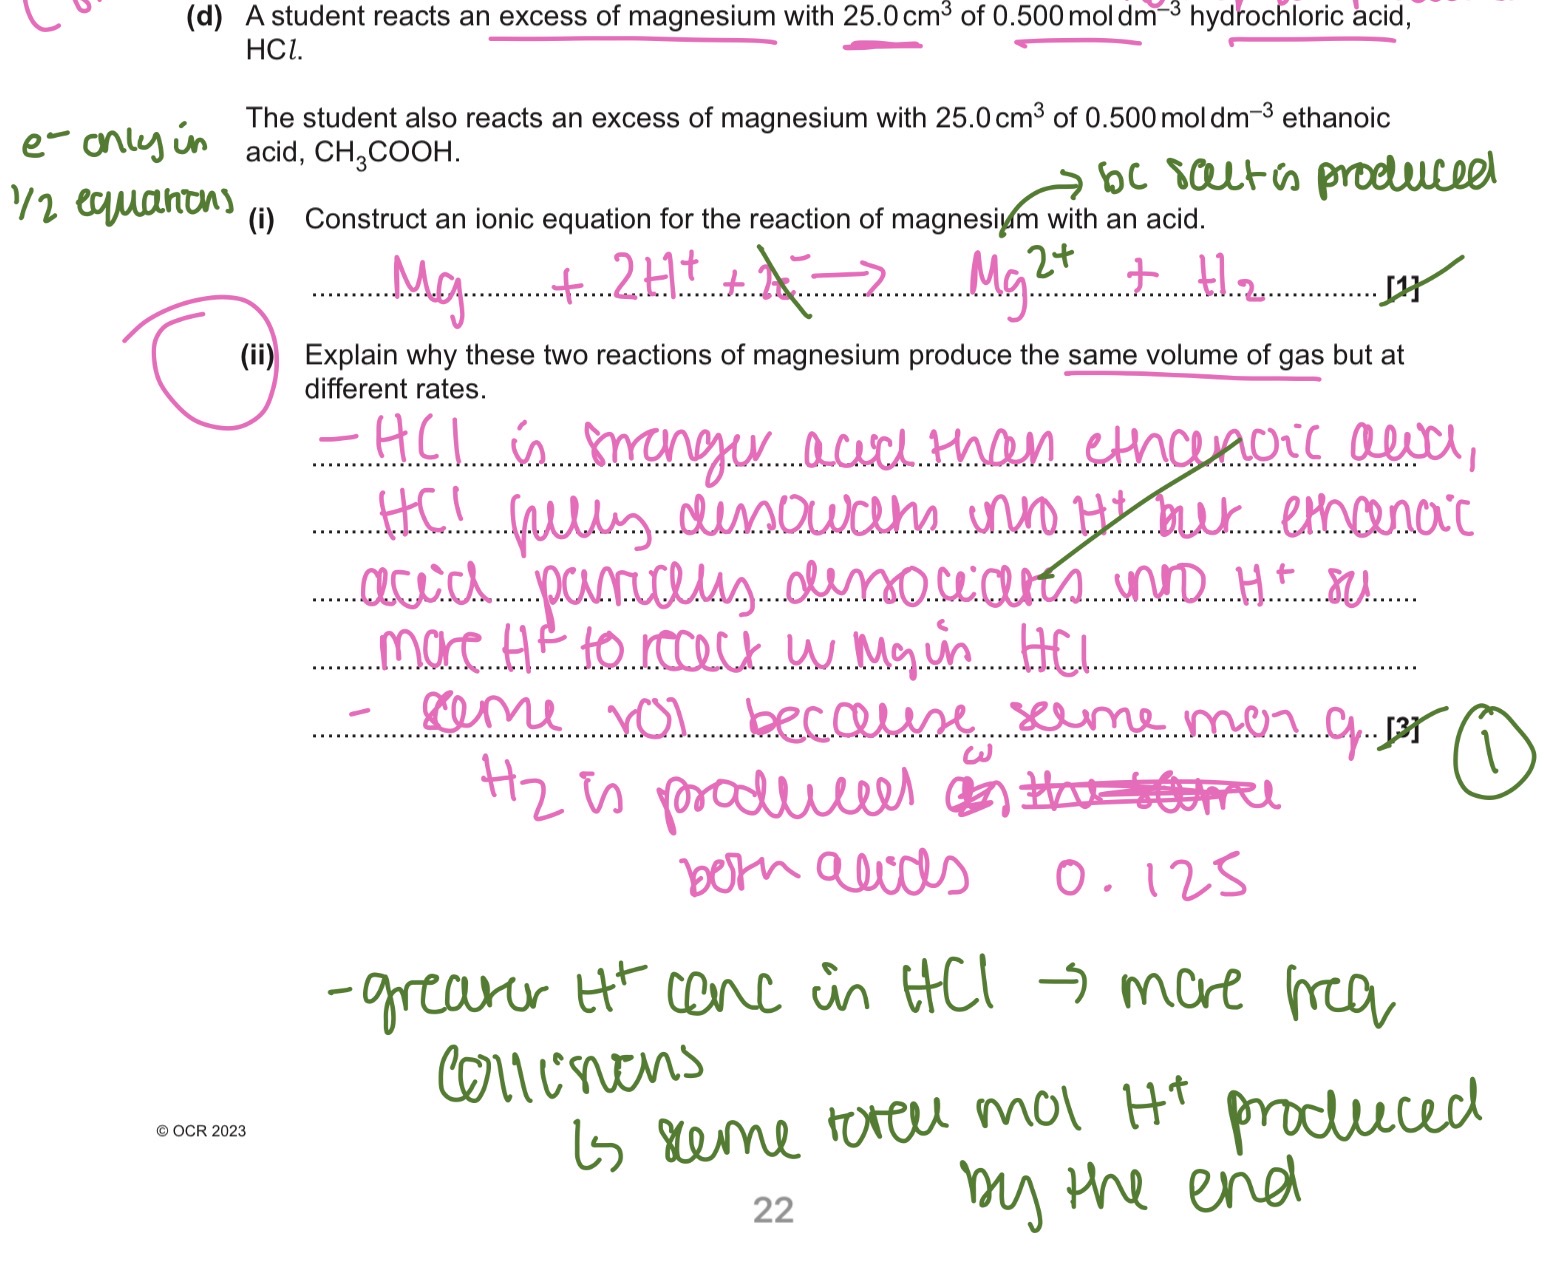 (d) A student reacts an excess of magnesium with 25.0 cm³ of 0.500 mol dm⁻³ hydrochloric acid,
HCl.
The student also reacts an excess of magnesium with 25.0 cm³ of 0.500 mol dm⁻³ ethanoic
acid, CH₃COOH.
e⁻ only in
1/2 equations
→ bc salt is produced
(i) Construct an ionic equation for the reaction of magnesium with an acid.
Mg + 2H⁺ + → Mg²⁺ + H₂ [1]
(ii) Explain why these two reactions of magnesium produce the same volume of gas but at
different rates.
- HCl is stronger acid than ethanoic acid,
HCl fully dissociates into H⁺ but ethanoic
acid partially dissociates into H⁺ so
more H⁺ to react w Mg in HCl
- same vol because same mol of [3] 1
H₂ is produced w
both acids 0.125
- greater H⁺ conc in HCl → more freq
collisions
↳ same total mol H⁺ produced
by the end
© OCR 2023
22